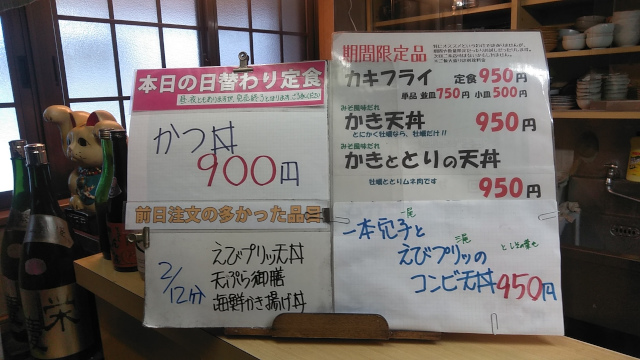 本日の日替わり定食
かつ丼
900円
前日注文の多かった品
2/12分
えびプリッ天丼
天ぷら御膳
海鮮かき揚げ丼
期間限定品
カキフライ 定食950円
単品 並皿750円 小皿500円
みそ風味だれ
かき天丼 950円
とにかく牡蠣なら、牡蠣だけ!!
みそ風味だれ
かきととりの天丼
牡蠣ととりムネ肉です
950円
一尾
一本穴子と
えびプリッの
コンビ天丼950円
栄